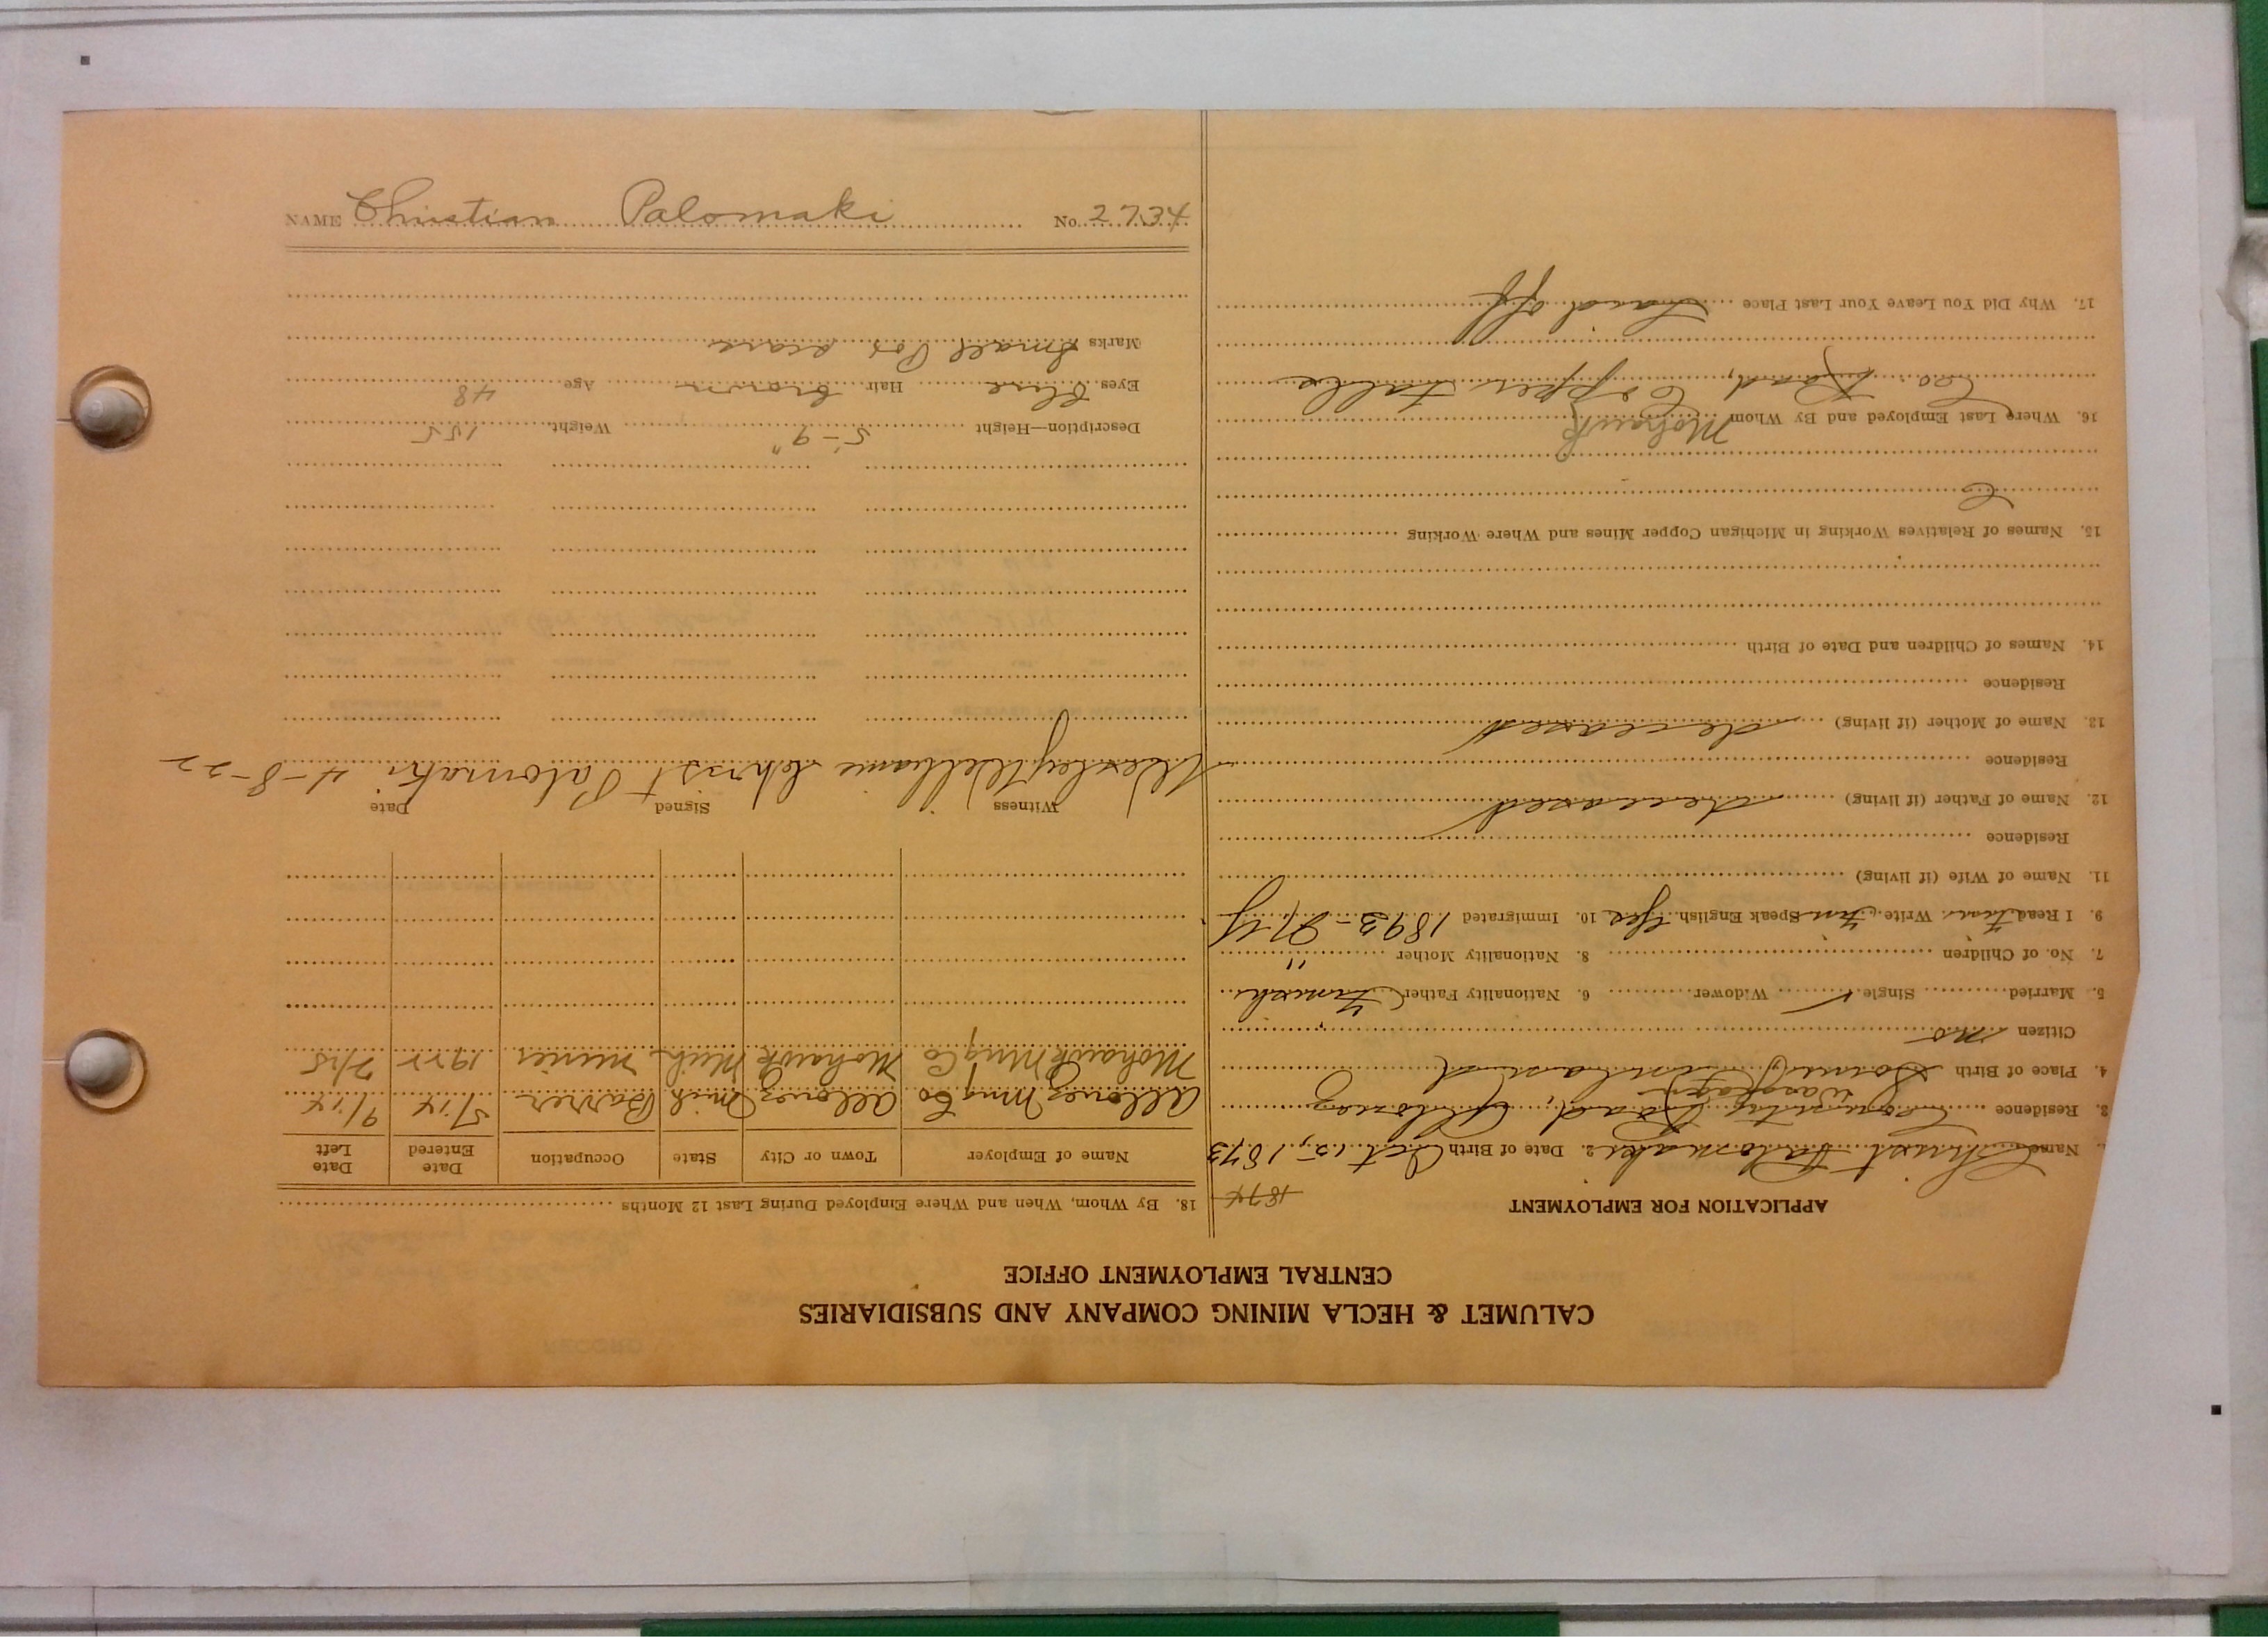 CALUMET & HECLA MINING COMPANY AND SUBSIDIARIES
CENTRAL EMPLOYMENT OFFICE
APPLICATION FOR EMPLOYMENT
1874
1. Name Christ Palomaki 2. Date of Birth Oct 15, 1873
3. Residence County Road, Allouez
4. Place of Birth Soini Finland
Citizen no
5. Married Single ✓ Widower 6. Nationality Father Finnish
7. No. of Children 8. Nationality Mother "
9. I Read Finn Write Finn Speak English Yes 10. Immigrated 1893 - N.Y.
11. Name of Wife (if living)
Residence
12. Name of Father (if living) deceased
Residence
13. Name of Mother (if living) deceased
Residence
14. Names of Children and Date of Birth
15. Names of Relatives Working in Michigan Copper Mines and Where Working
16. Where Last Employed and By Whom Mohawk
Co. Road, Copper Falls
17. Why Did You Leave Your Last Place Laid off
18. By Whom, When and Where Employed During Last 12 Months
Name of Employer Town or City State Occupation Date Entered Date Left
Allouez Mng Co Allouez Mich 5/14 9/14
Mohawk Mng Co Mohawk Mich miner 1922
Witness Signed Date
Wesley Williams Christ Palomaki 4-8-22
Description—Height 5'-9" Weight 155
Eyes Blue Hair brown Age 48
Marks Small Pox scars
NAME Christian Palomaki No. 2734